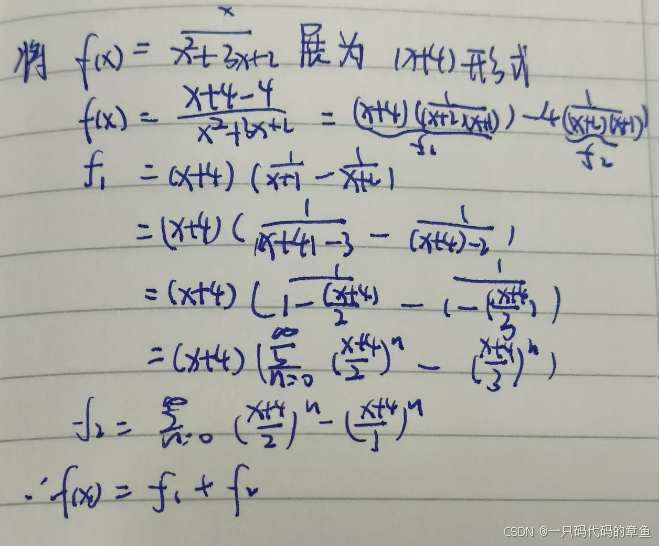 将 f(x) = x/(x²+3x+2) 展为 (x+4) 形式
f(x) = (x+4-4)/(x²+3x+2) = (x+4)(1/((x+2)(x+1))) - 4(1/((x+2)(x+1)))
f₁ f₂
f₁ = (x+4)(1/(x+1) - 1/(x+2))
= (x+4)(1/((x+4)-3) - 1/((x+4)-2))
= (x+4)(1/(1-(x+4)/2) - 1/(1-(x+4)/3))
= (x+4)(∑_{n=0}^{∞} ((x+4)/2)ⁿ - ((x+4)/3)ⁿ)
f₂ = ∑_{n=0}^{∞} ((x+4)/2)ⁿ - ((x+4)/3)ⁿ
∴ f(x) = f₁ + f₂
CSDN @一只码代码的章鱼